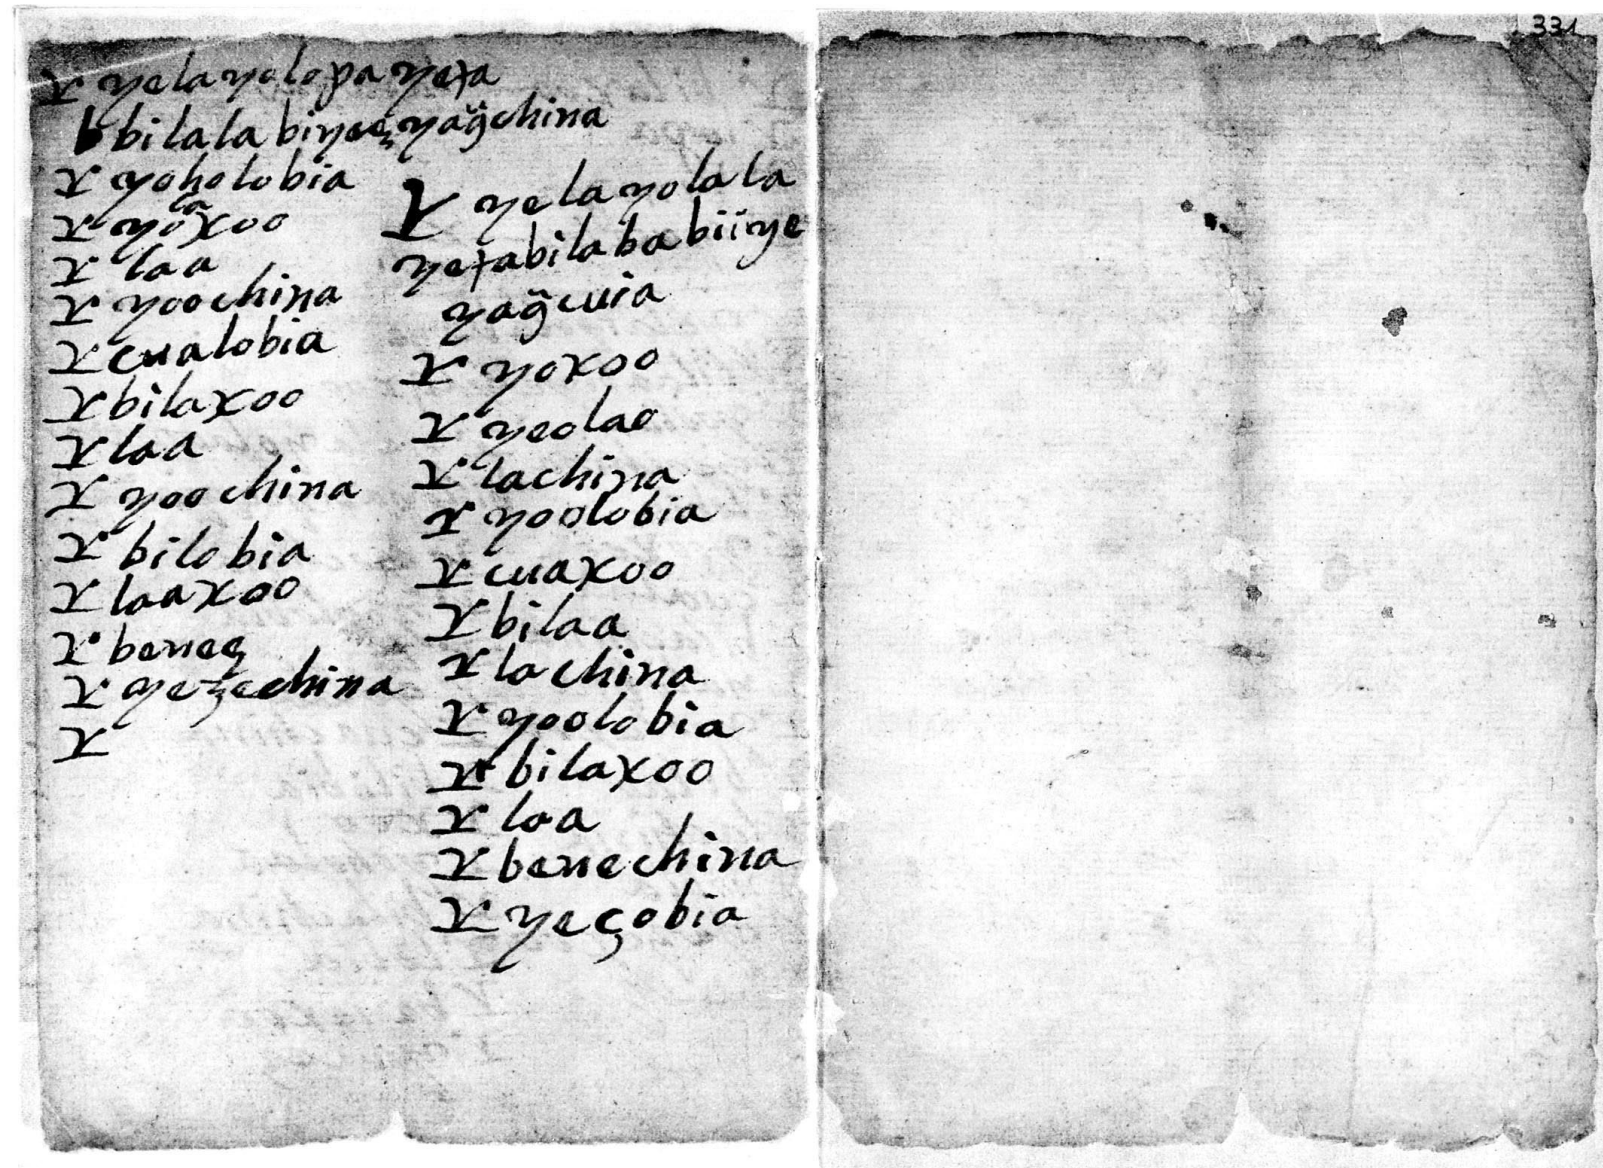 331
Y yelayolopa yeta
bbilala biyeez yag̃china
Y yoholobia
Y yoxoo
Y laa
Y yoochina
Y cualobia
Y bilaxoo
Y laa
Y yoochina
Y bilobia
Y laaxoo
Y beneç
Y yeçechina
Y
Y yelayolala
yetabilaba biiye
yag̃cuia
Y yoxoo
Y yeolao
Y lachina
Y yoolobia
Y cuaxoo
Y bilaa
Y lachina
Y yoolobia
Y bilaxoo
Y laa
Y benechina
Y yeçobia